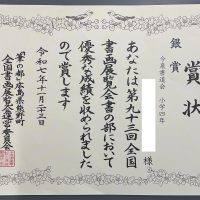 賞状
銀賞
今泉書道会 小学四年
様
あなたは第九十三回全国
書画展覧会書の部において
優秀な成績を収められました
ので賞します
令和七年十一月二十三日
「筆の都」広島県熊野町
全国書画展覧会運営委員会